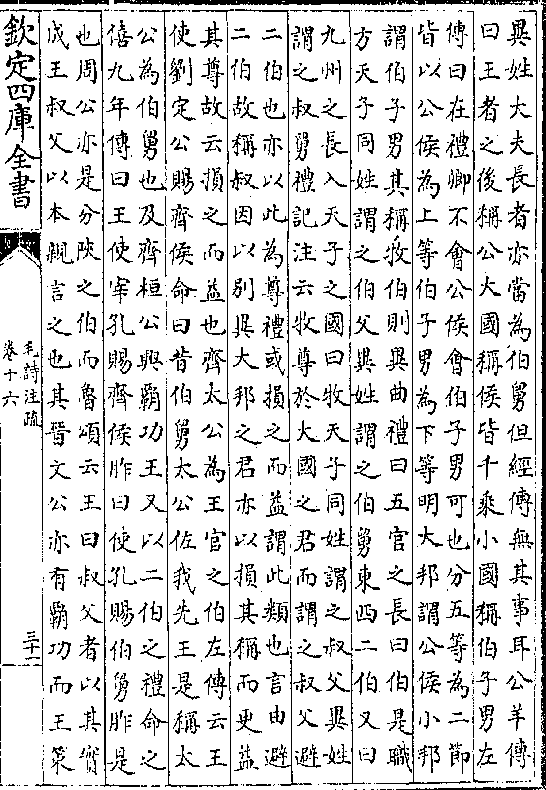 異姓大夫長者亦當為伯舅但經傳無其事耳公羊傳
曰王者之後稱公大國稱侯皆千乘小國稱伯子男左
傳曰在禮卿不會公侯會伯子男可也分五等為二節
皆以公侯為上等伯子男為下等明大邦謂公侯小邦
謂伯子男其稱牧伯則異曲禮曰五官之長曰伯是職
方天子同姓謂之伯父異姓謂之伯舅東西二伯又曰
九州之長入天子之國曰牧天子同姓謂之叔父異姓
謂之叔舅禮記注云牧尊於大國之君而謂之叔父避
二伯也亦以此為尊禮或損之而益謂此類也言由避
二伯故稱叔因以别異大邦之君亦以損其稱而更益
其尊故云損之而益也齊太公為王官之伯左傳云王
使劉定公賜齊侯命曰昔伯舅太公佐我先王是稱太
公為伯舅也及齊桓公興霸功王又以二伯之禮命之
僖九年傳曰王使宰孔賜齊侯胙曰使孔賜伯舅胙是
也周公亦是分陜之伯而魯頌云王曰叔父者以其實
成王叔父以本親言之也其晉文公亦有霸功而王策
欽定四庫全書
毛詩注疏
卷十六
三十一